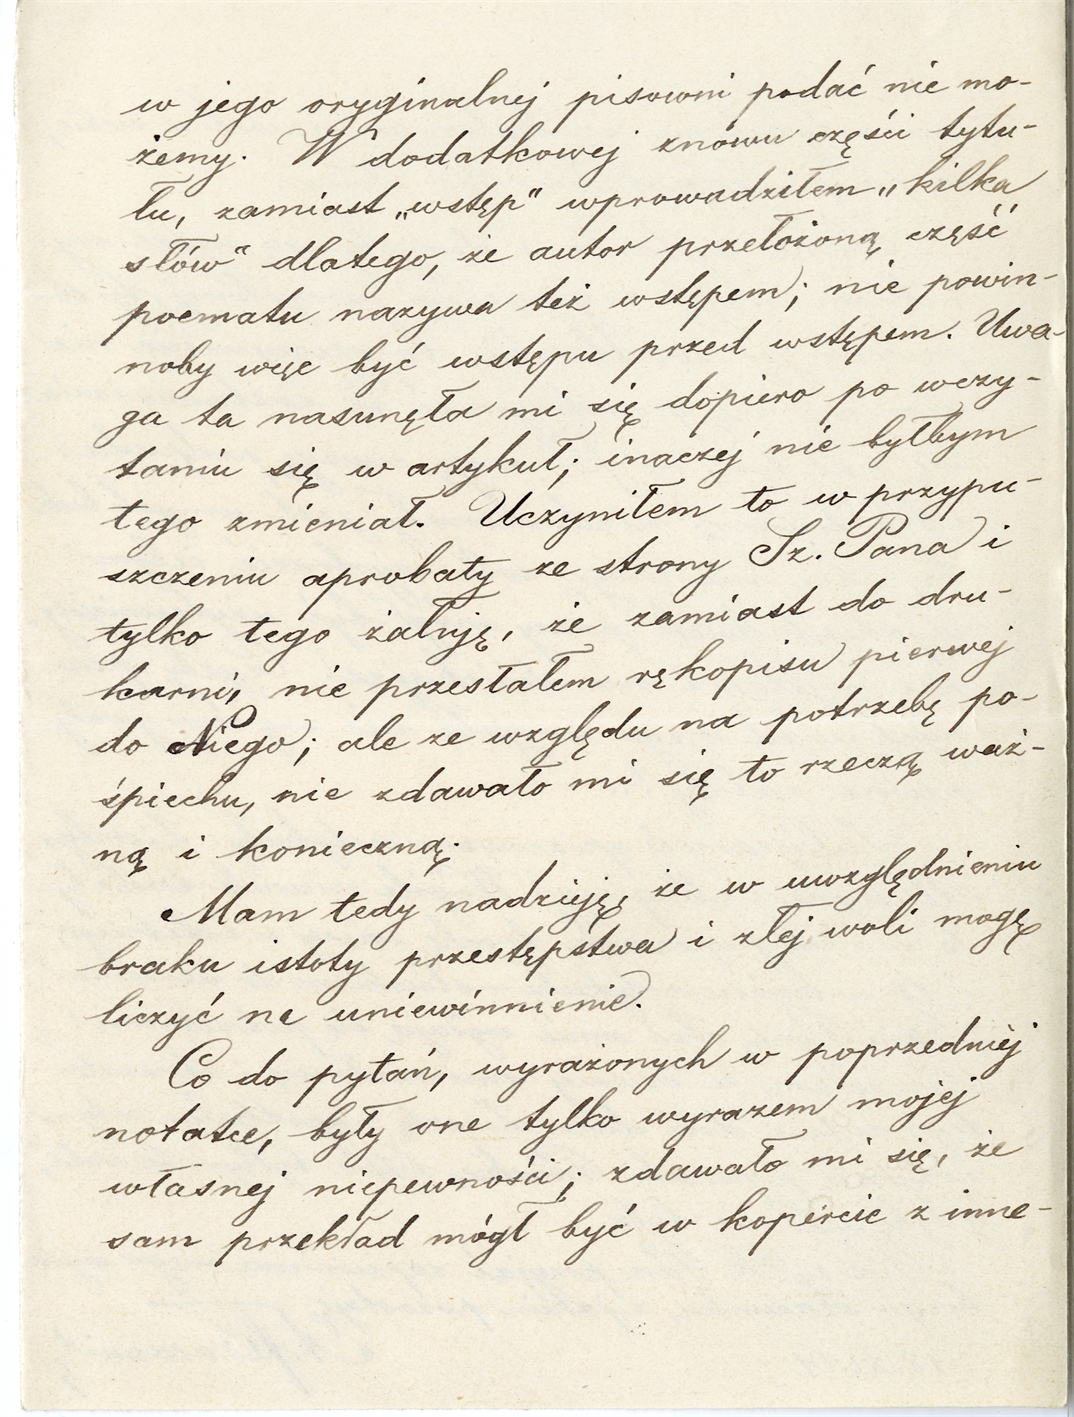 w jego oryginalnej pisowni podać nie mo-
żemy. W dodatkowej znowu części tytu-
łu, zamiast „wstęp" wprowadziłem „kilka
słów" dlatego, że autor przełożoną część
poematu nazywa też wstępem; nie powin-
noby więc być wstępu przed wstępem. Uwa-
ga ta nasunęła mi się dopiero po wczy-
taniu się w artykuł; inaczej nie byłbym
tego zmieniał. Uczyniłem to w przypu-
szczeniu aprobaty ze strony Sz. Pana i
tylko tego żałuję, że zamiast do dru-
karni, nie przesłałem rękopisu pierwej
do Niego; ale ze względu na potrzebę po-
śpiechu, nie zdawało mi się to rzeczą waż-
ną i konieczną.
Mam tedy nadzieję, że w uwzględnieniu
braku istoty przestępstwa i złej woli mogę
liczyć na uniewinnienie.
Co do pytań, wyrażonych w poprzedniej
notatce, były one tylko wyrazem mojej
własnej niepewności; zdawało mi się, że
sam przekład mógł być w kopercie z inne-